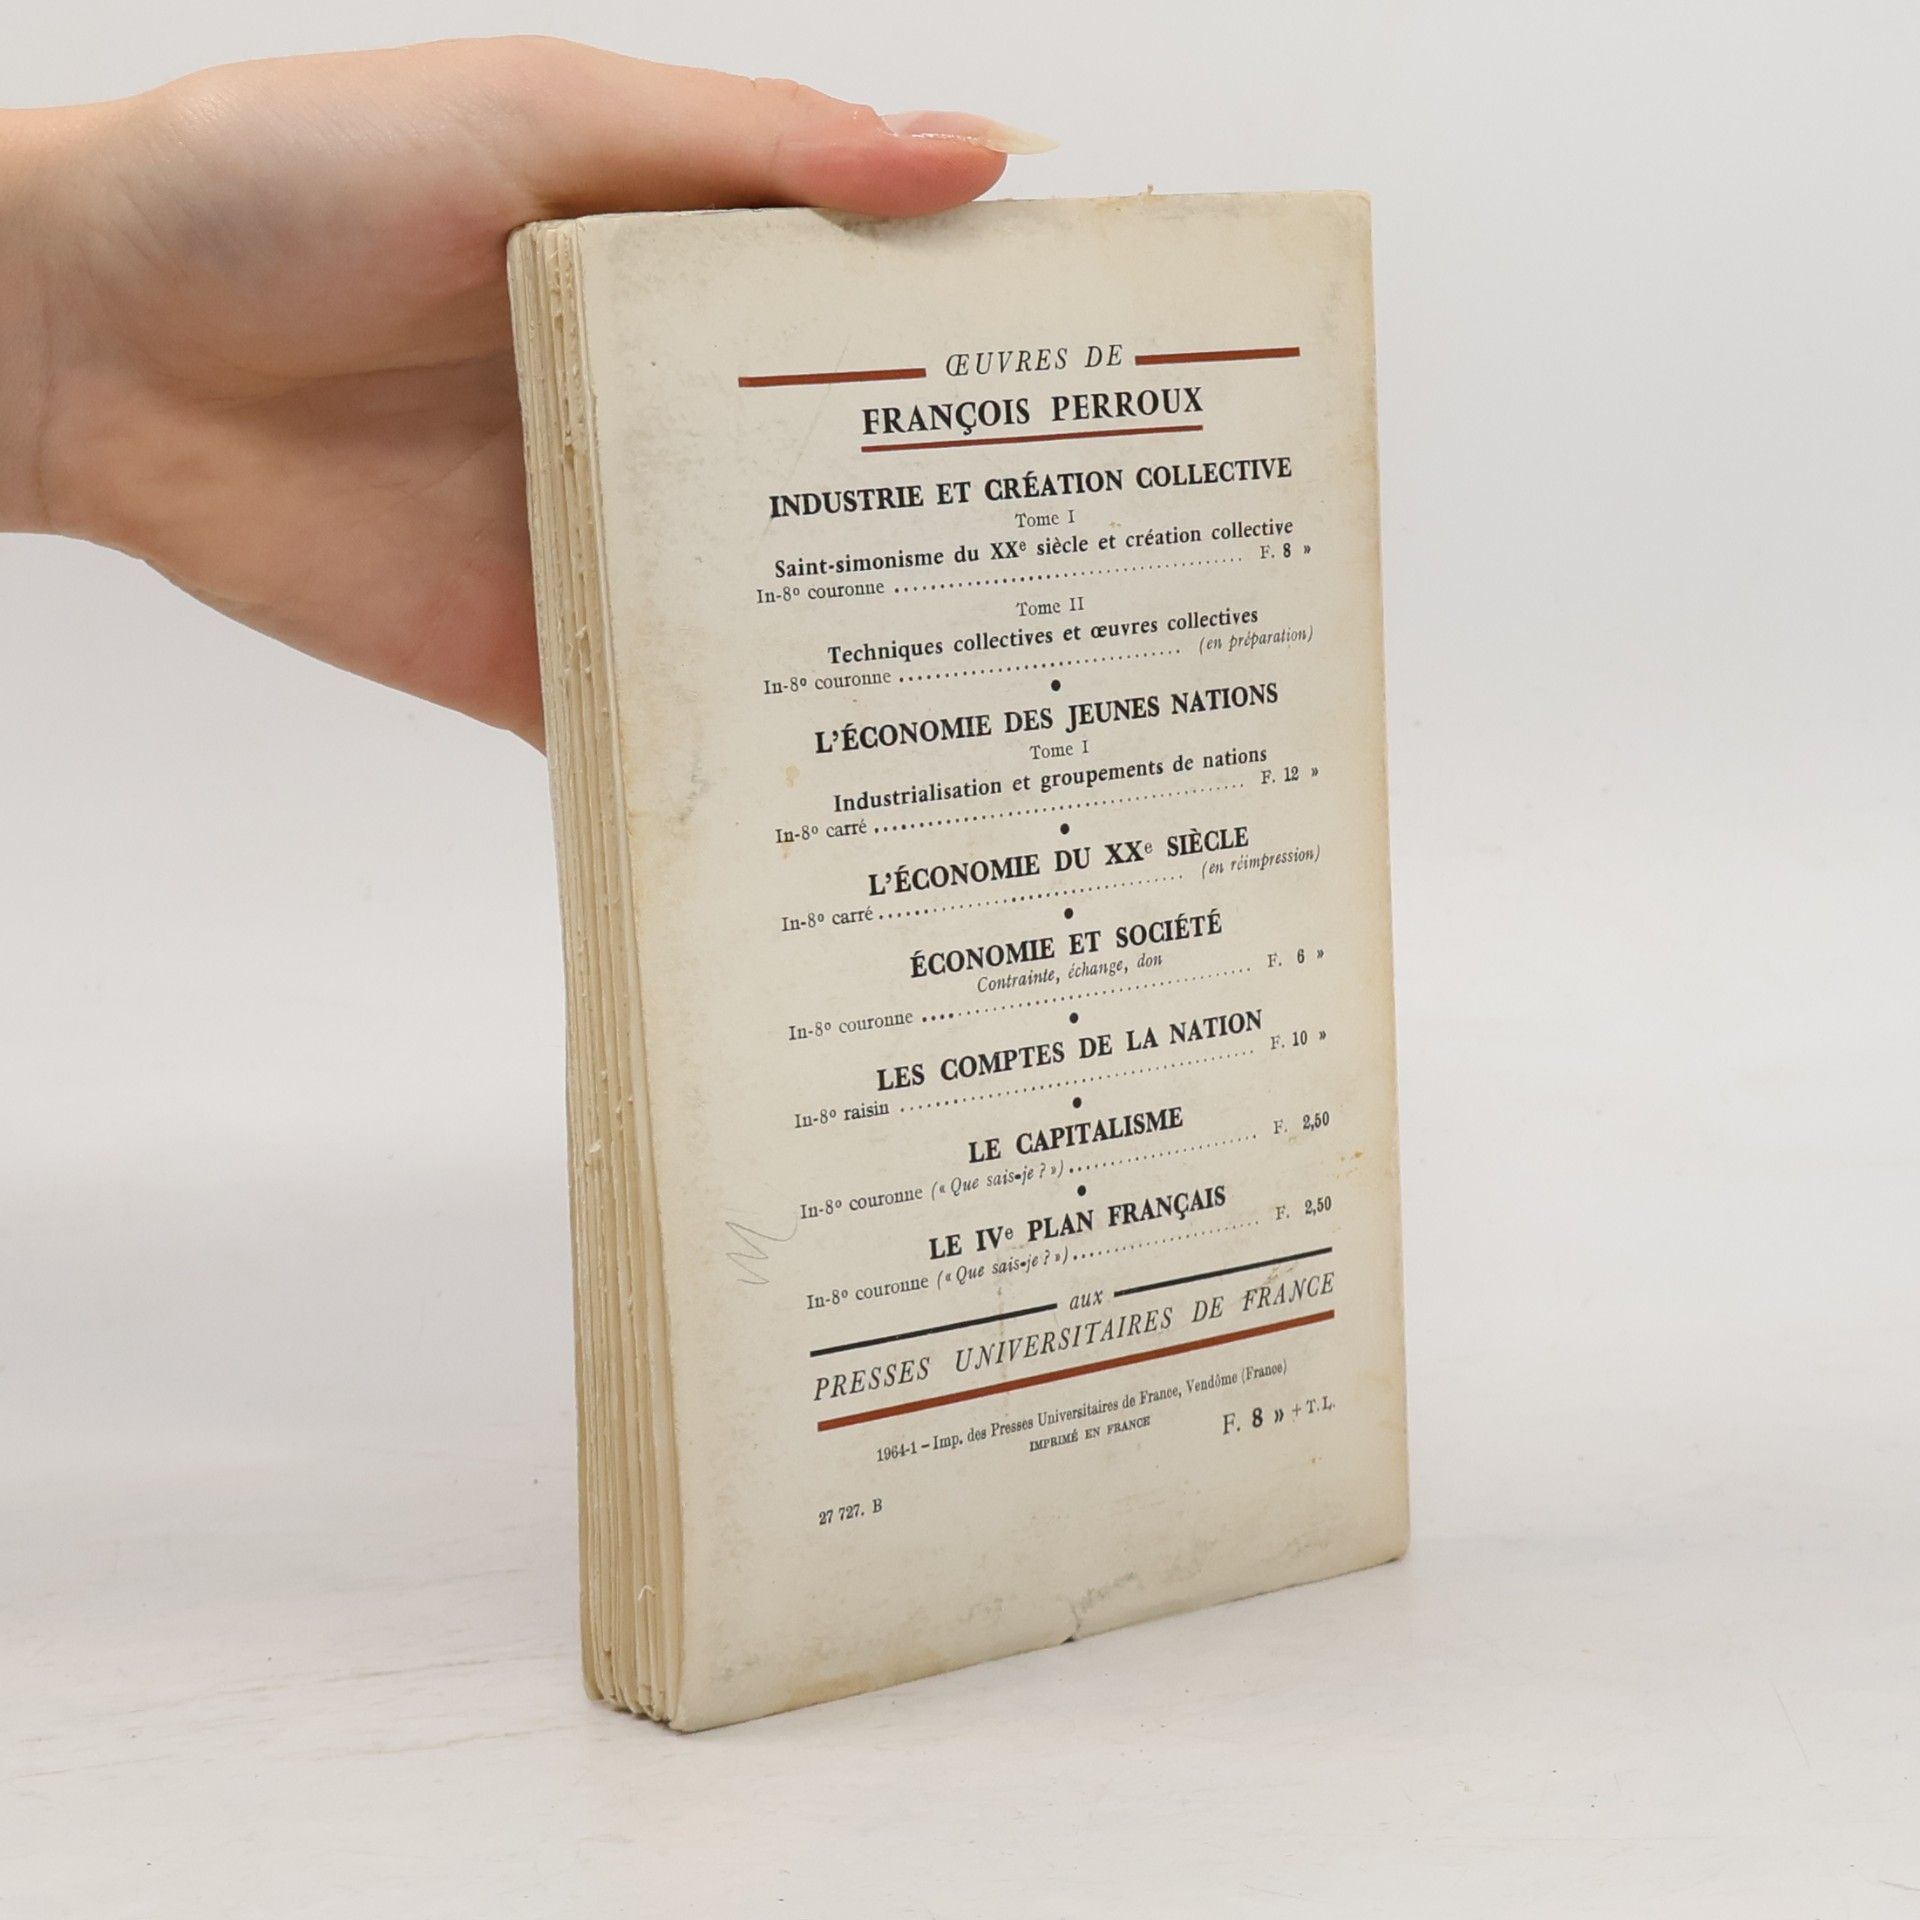 ŒUVRES DE
FRANÇOIS PERROUX
INDUSTRIE ET CRÉATION COLLECTIVE
Tome I
Saint-simonisme du XXe siècle et création collective
In-8º couronne ........................................ F. 8 »
Tome II
Techniques collectives et œuvres collectives
In-8º couronne ................................ (en préparation)
•
L'ÉCONOMIE DES JEUNES NATIONS
Tome I
Industrialisation et groupements de nations
In-8º carré .......................................... F. 12 »
•
L'ÉCONOMIE DU XXe SIÈCLE
In-8º carré ................................... (en réimpression)
•
ÉCONOMIE ET SOCIÉTÉ
Contrainte, échange, don
In-8º couronne ...................................... F. 6 »
•
LES COMPTES DE LA NATION
In-8º raisin ......................................... F. 10 »
•
LE CAPITALISME
In-8º couronne (« Que sais-je ? ») ..................... F. 2,50
•
LE IVe PLAN FRANÇAIS
In-8º couronne (« Que sais-je ? ») ..................... F. 2,50
aux
PRESSES UNIVERSITAIRES DE FRANCE
1964-1 – Imp. des Presses Universitaires de France, Vendôme (France)
IMPRIMÉ EN FRANCE
F. 8 » + T.L.
27 727. B